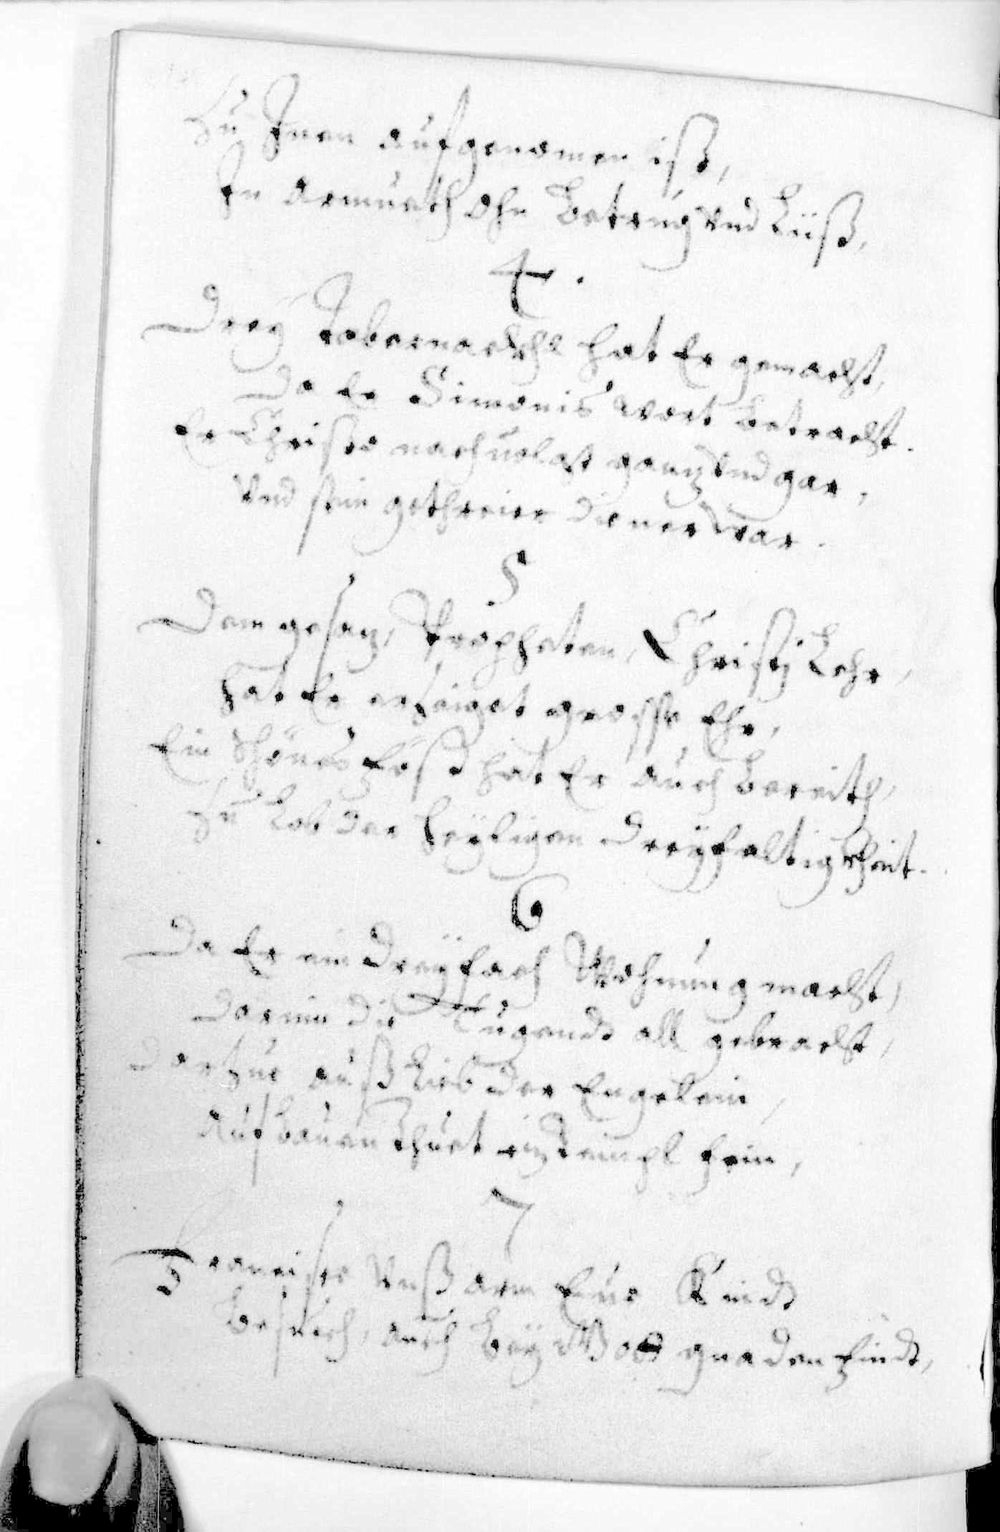 Zu Inen aufgenomen ist,
In Armueth ohn Betrug vnd Lüst.
4.
Drey Tabernackhl hat Er gemacht,
Da Er Simonis wort betracht.
Er Christo nachuolgt ganz vnd gar,
Vnd sein gethreier diener war.
5
Dem gesaz, Propheten, Christj Lehr,
hat Er erzeiget grosse Ehr,
Ein schönes fest hat Er auch bereith,
Zu Lob der heyligen Dreyfaltigkheit.
6
Da Er ein dreyfach Wohnung macht,
darein die Tugendt all gebracht,
Darzue auß Lieb der Engelein,
Aufbauen thuet ein Templ fein,
7
Francisco vnß arm Kindt
auch bey Gott gnaden findt,